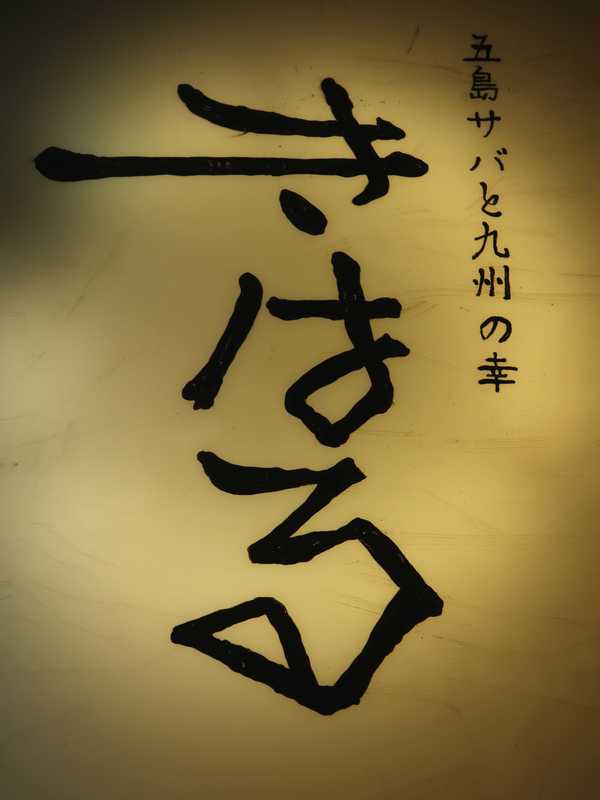 五島サバと九州の幸
きはる